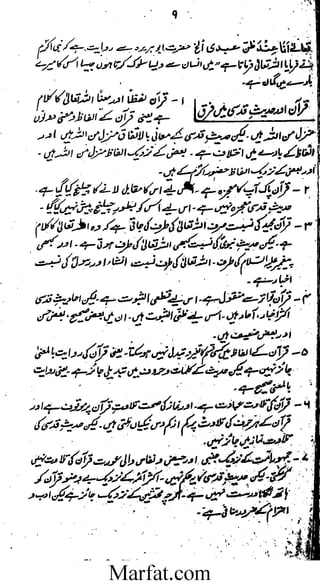 ۹
تعالیٰ أنا عند ظن عبدی الخ حضرت ابو ہریرہ سے روایت ہے کہ نبی اکرم
نے فرمایا اللہ تعالیٰ فرماتا ہے "میں انسان سے ویسا سلوک کرتا ہوں جیسا اس کا میرے
بارے میں گمان ہے۔
قرآن اور حدیث قدسی میں فرق
۱ - قرآن لفظاً اور معناً اللہ تعالیٰ کا کلام
ہے یعنی قرآن کے الفاظ و معنی دونوں
منزل من اللہ ہیں۔ لیکن حدیث قدسی کے معانی بالاتفاق منزل من اللہ ہیں اور
الفاظ کے بارے میں اختلاف ہے۔ بعض کے نزدیک الفاظ منزل من اللہ ہیں۔
اور بعض کے نزدیک الفاظ حضور اکرم کے ہیں۔
۲ - قرآن پاک آپ کا معجزہ ہے۔ اس لیے اس کا مقابل لانے کا چیلنج کیا گیا ہے۔
حدیث قدسی معجزہ نہیں ہے۔ اس لیے اس کو بطور چیلنج پیش نہیں کیا گیا۔
۳ - قرآن مجید کی نسبت صرف اللہ تعالیٰ کی طرف کی جاتی ہے کہ وہ اللہ تعالیٰ کا کلام
ہے۔ لیکن حدیث کی نسبت کبھی اللہ تعالیٰ کی طرف ہوتی ہے۔ اور کبھی
پیغمبر علیہ السلام کی طرف۔ اللہ تعالیٰ کی طرف نسبت انشاء اور رسول کی نسبت
اخبار ہے۔
۴ - قرآن تواتر سے منقول ہے۔ اس لیے قطعی الثبوت ہے۔ لیکن احادیث قدسی
اکثر اخبار آحاد ہیں۔ اس لیے ظنی الثبوت ہیں۔ ان میں بعض صحیح، بعض حسن
اور بعض ضعیف ہیں۔
۵ - قرآن کے الفاظ میں تغیر تبدل نہیں ہو سکتا۔ یعنی قرآن کی روایت بالمعنیٰ
جائز نہیں ہے لیکن حدیث کے کلمات و حروف میں تبدیلی جائز ہے۔ یعنی روایت
بالمعنیٰ صحیح ہے۔
۶ - قرآن کی تلاوت عبادت ہے۔ اور نماز کی صحت تلاوت قرآن پر موقوف ہے اور
قرآن کے ہر حرف کی تلاوت پر کم از کم دس نیکیاں ملتی ہیں۔ لیکن حدیث قدسی کی
تلاوت نماز میں جائز نہیں۔
۷ - جمہور امت کے نزدیک جنبی اور حیض و نفاس والی عورت قرآن کی تلاوت نہیں
کر سکتی۔ لیکن حدیث قدسی کا یہ حکم نہیں۔ اکثر ائمہ کے نزدیک بے وضو قرآن کو
ہاتھ لگانا درست نہیں ہے۔ محدثین کے نزدیک جائز ہے لیکن ادب و
احترام کے ضرور منافی ہے۔
Marfat.com